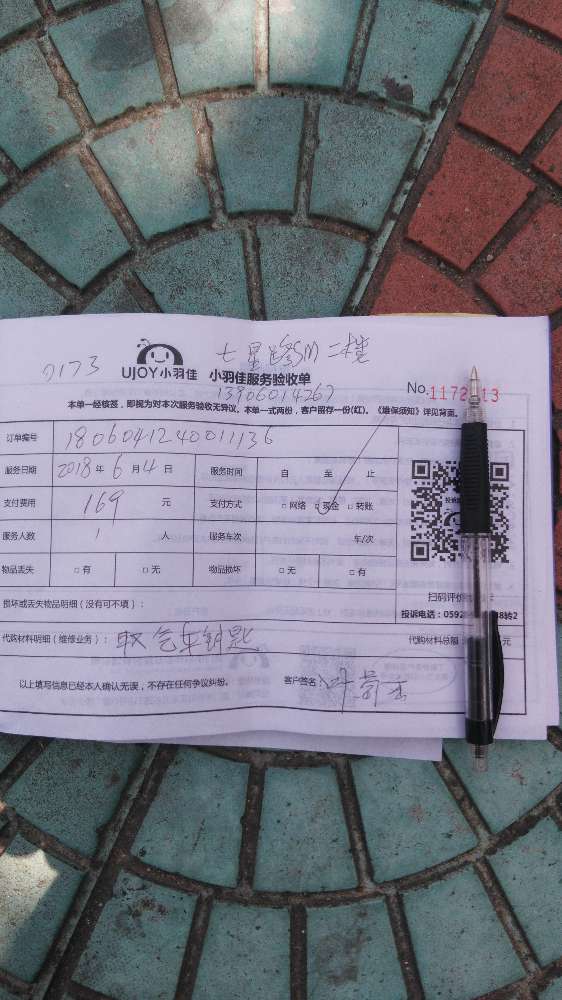 七星路SM二楼
0173
UJOY小羽佳 小羽佳服务验收单
13906014267
No.1172 13
本单一经核签，即视为对本次服务验收无异议。本单一式两份，客户留存一份(红)。《维保须知》详见背面。
订单编号 1806041240011136
服务日期 2018年6月4日 服务时间 自 至 止
支付费用 169 元 支付方式 □网络 □现金 □转账
服务人数 1 人 服务车次 车/次
物品丢失 □有 □无 物品损坏 □无 □有
扫码评价
损坏或丢失物品明细（没有可不填）：
投诉电话：0592 8转2
代购材料明细（维修业务）：取汽车钥匙 代购材料总额 元
以上填写信息已经本人确认无误，不存在任何争议纠纷。 客户签名 叶